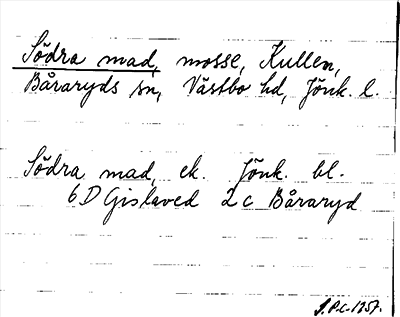 Södra mad, mosse, Kullen,
Båraryds sn, Västbo hd, Jönk. l.
Södra mad, ek. Jönk. bl.
6D Gislaved 2c Båraryd